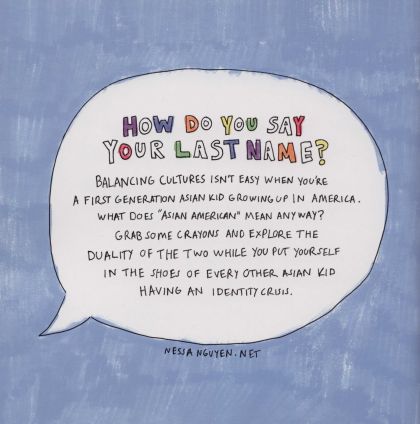 HOW DO YOU SAY
YOUR LAST NAME?
BALANCING CULTURES ISN'T EASY WHEN YOU'RE
A FIRST GENERATION ASIAN KID GROWING UP IN AMERICA.
WHAT DOES "ASIAN AMERICAN" MEAN ANYWAY?
GRAB SOME CRAYONS AND EXPLORE THE
DUALITY OF THE TWO WHILE YOU PUT YOURSELF
IN THE SHOES OF EVERY OTHER ASIAN KID
HAVING AN IDENTITY CRISIS.
NESSANGUYEN.NET